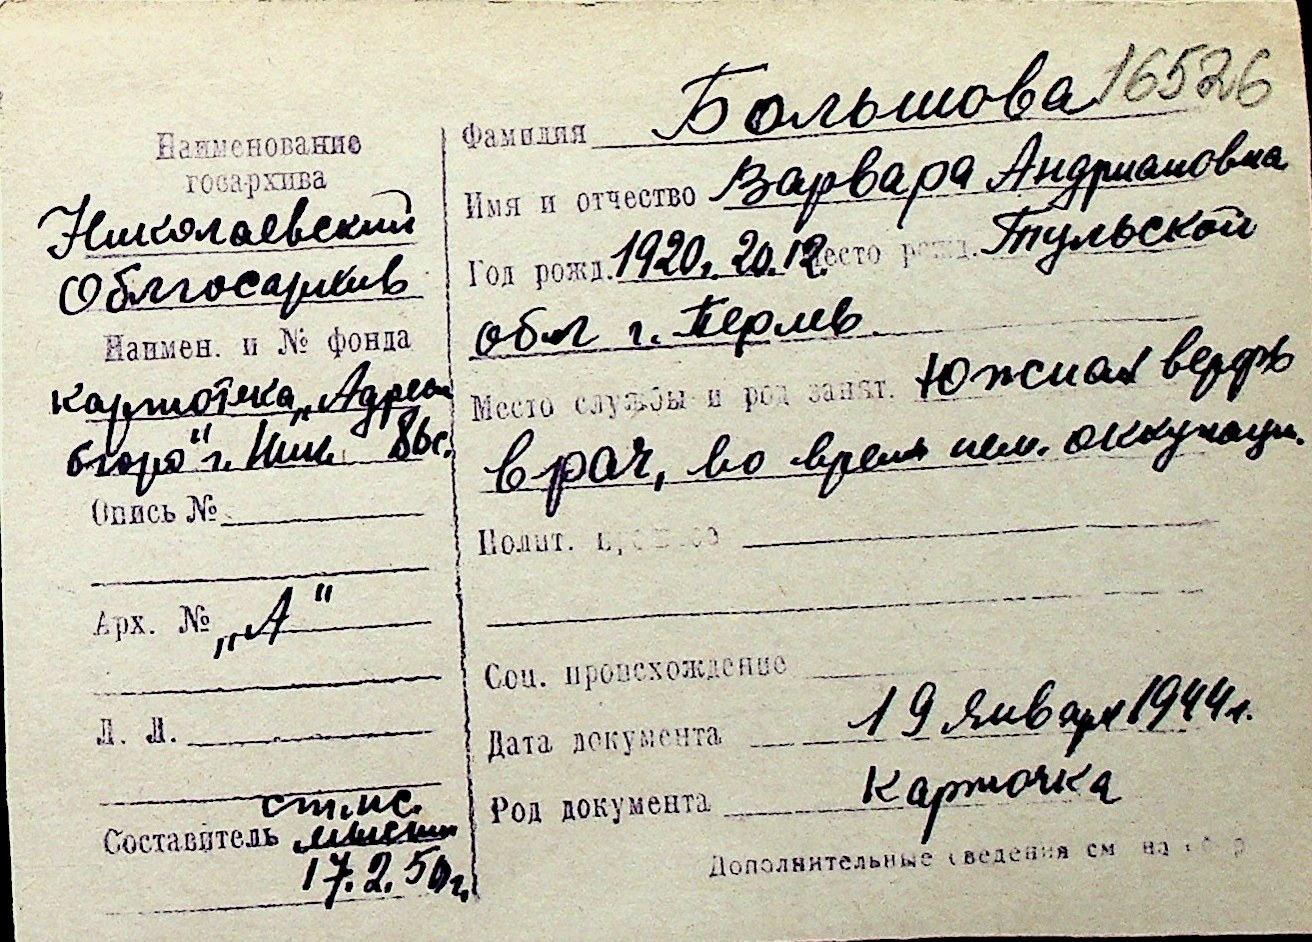 16526
Наименование
госархива
Николаевский
Облгосархив
Наимен. и № фонда
картотека „Адресн
бюро" г. Ник. 86с.
Опись №
Арх. № „А"
Л. Л.
ст. нс.
Составитель
17.2.50 г.
Фамилия Большова
Имя и отчество Варвара Андриановна
Год рожд. 1920, 20.12. Место рожд. Тульской
обл г.
Место службы и род занят. Южная верфь
врач, во время нем. оккупаци.
Полит. процесс
Соц. происхождение
Дата документа 19 января 1944 г.
Род документа карточка
Дополнительные сведения см на обор